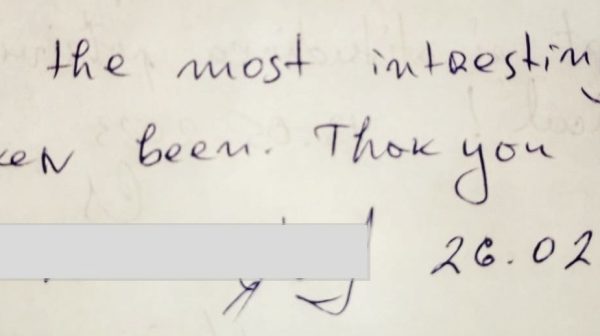 the most intresting
ken been. Thak you
26.02